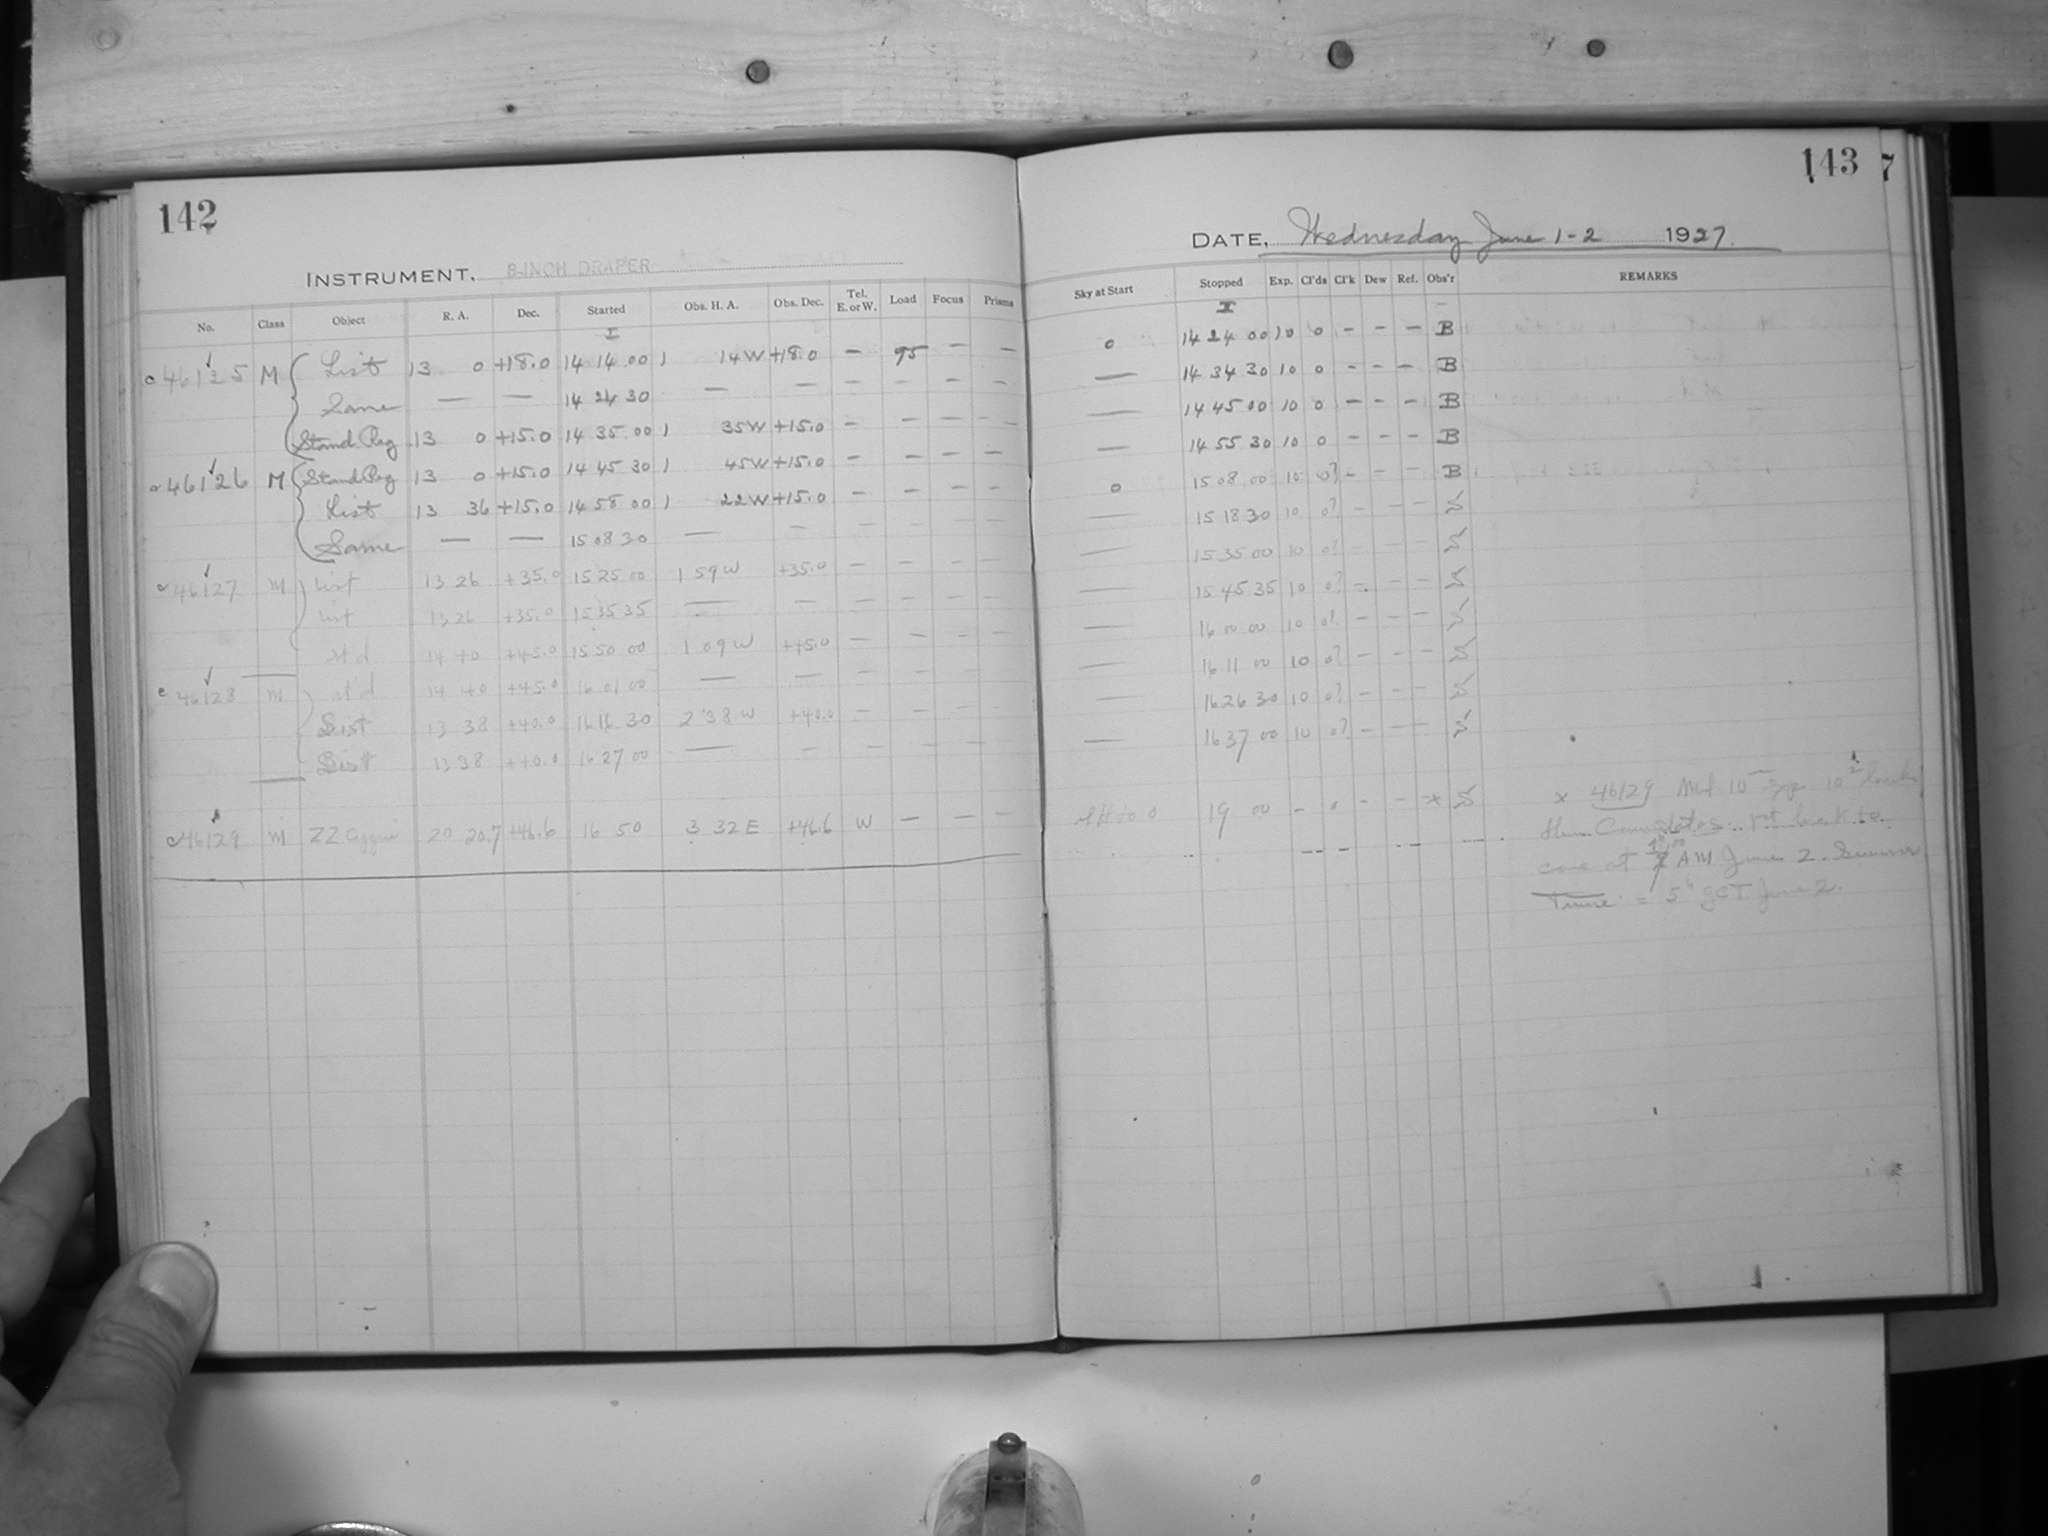 142
INSTRUMENT, 8-INCH DRAPER
No. Class Object R. A. Dec. Started Obs. H. A. Obs. Dec. Tel. E. or W. Load Focus Prisms
I
46125 M List 13 0 +18.0 14 14 00 1 14W +18.0 – 95 – –
Same — — 14 24 30 — — – – – –
Stand Reg 13 0 +15.0 14 35 00 1 35W +15.0 – – – –
46126 M Stand Reg 13 0 +15.0 14 45 30 1 45W +15.0 – – – –
List 13 36 +15.0 14 58 00 1 22W +15.0 – – – –
Same — — 15 08 30 — – – – – –
46127 M List 13 26 +35.0 15 25 00 1 59W +35.0 – – – –
List 13 26 +35.0 15 35 35 — – – – – –
St'd 14 40 +45.0 15 50 00 1 09W +45.0 – – – –
46128 M St'd 14 40 +45.0 16 01 00 — – – – – –
List 13 38 +40.0 16 16 30 2 38 W +40.0 – – – –
List 13 38 +40.0 16 27 00 — – – – – –
46129 M ZZ Cygni 20 20.7 +46.6 16 50 3 32 E +46.6 W – – –
143
DATE, Wednesday June 1-2 1927.
Sky at Start Stopped Exp. Cl'ds Cl'k Dew Ref. Obs'r REMARKS
I
0 14 24 00 10 0 – – – B
— 14 34 30 10 0 – – – B
— 14 45 00 10 0 – – – B
— 14 55 30 10 0 – – – B
0 15 08 00 10 0? – – – B
— 15 18 30 10 0? – – – S
— 15 35 00 10 0? – – – S
— 15 45 35 10 0? – – – S
— 16 00 00 10 0? – – – S
— 16 11 00 10 0? – – – S
— 16 26 30 10 0? – – – S
— 16 37 00 10 0? – – – S
19 00 – 0 – – x S x 46129 10 10
then to
at AM June 2. Summer
Time = 5h GCT June 2.